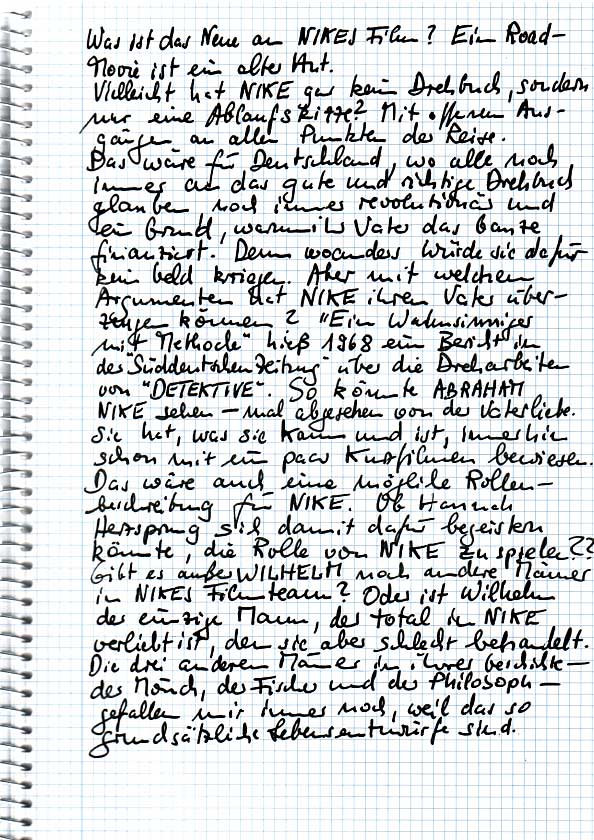 Was ist das Neue an NIKES Film? Ein Road-
Movie ist ein alter Hut.
Vielleicht hat NIKE gar kein Drehbuch, sondern
nur eine Ablaufskizze? Mit offenen Aus-
gängen an allen Punkten der Reise.
Das wäre für Deutschland, wo alle noch
immer an das gute und richtige Drehbuch
glauben noch immer revolutionär und
ein Grund, warum ihr Vater das Ganze
finanziert. Denn woanders würde sie dafür
kein Geld kriegen. Aber mit welchen
Argumenten hat NIKE ihren Vater über-
zeugen können? "Ein Wahnsinniger
mit Methode" hieß 1968 ein Bericht in
der "Süddeutschen Zeitung" über die Dreharbeiten
von "DETEKTIVE". So könnte ABRAHAM
NIKE sehen – mal abgesehen von der Vaterliebe.
Sie hat, was sie kann und ist, immerhin
schon mit ein paar Kurzfilmen bewiesen.
Das wäre auch eine mögliche Rollen-
beschreibung für NIKE. Ob Hannah
Herzsprung sich damit dafür begeistern
könnte, die Rolle von NIKE zu spielen??
Gibt es außer WILHELM noch andere Männer
in NIKES Filmteam? Oder ist Wilhelm
der einzige Mann, der total in NIKE
verliebt ist, den sie aber schlecht behandelt.
Die drei anderen Männer in ihrer Geschichte –
der Mönch, der Fischer und der Philosoph –
gefallen mir immer noch, weil das so
grundsätzliche Lebensentwürfe sind.